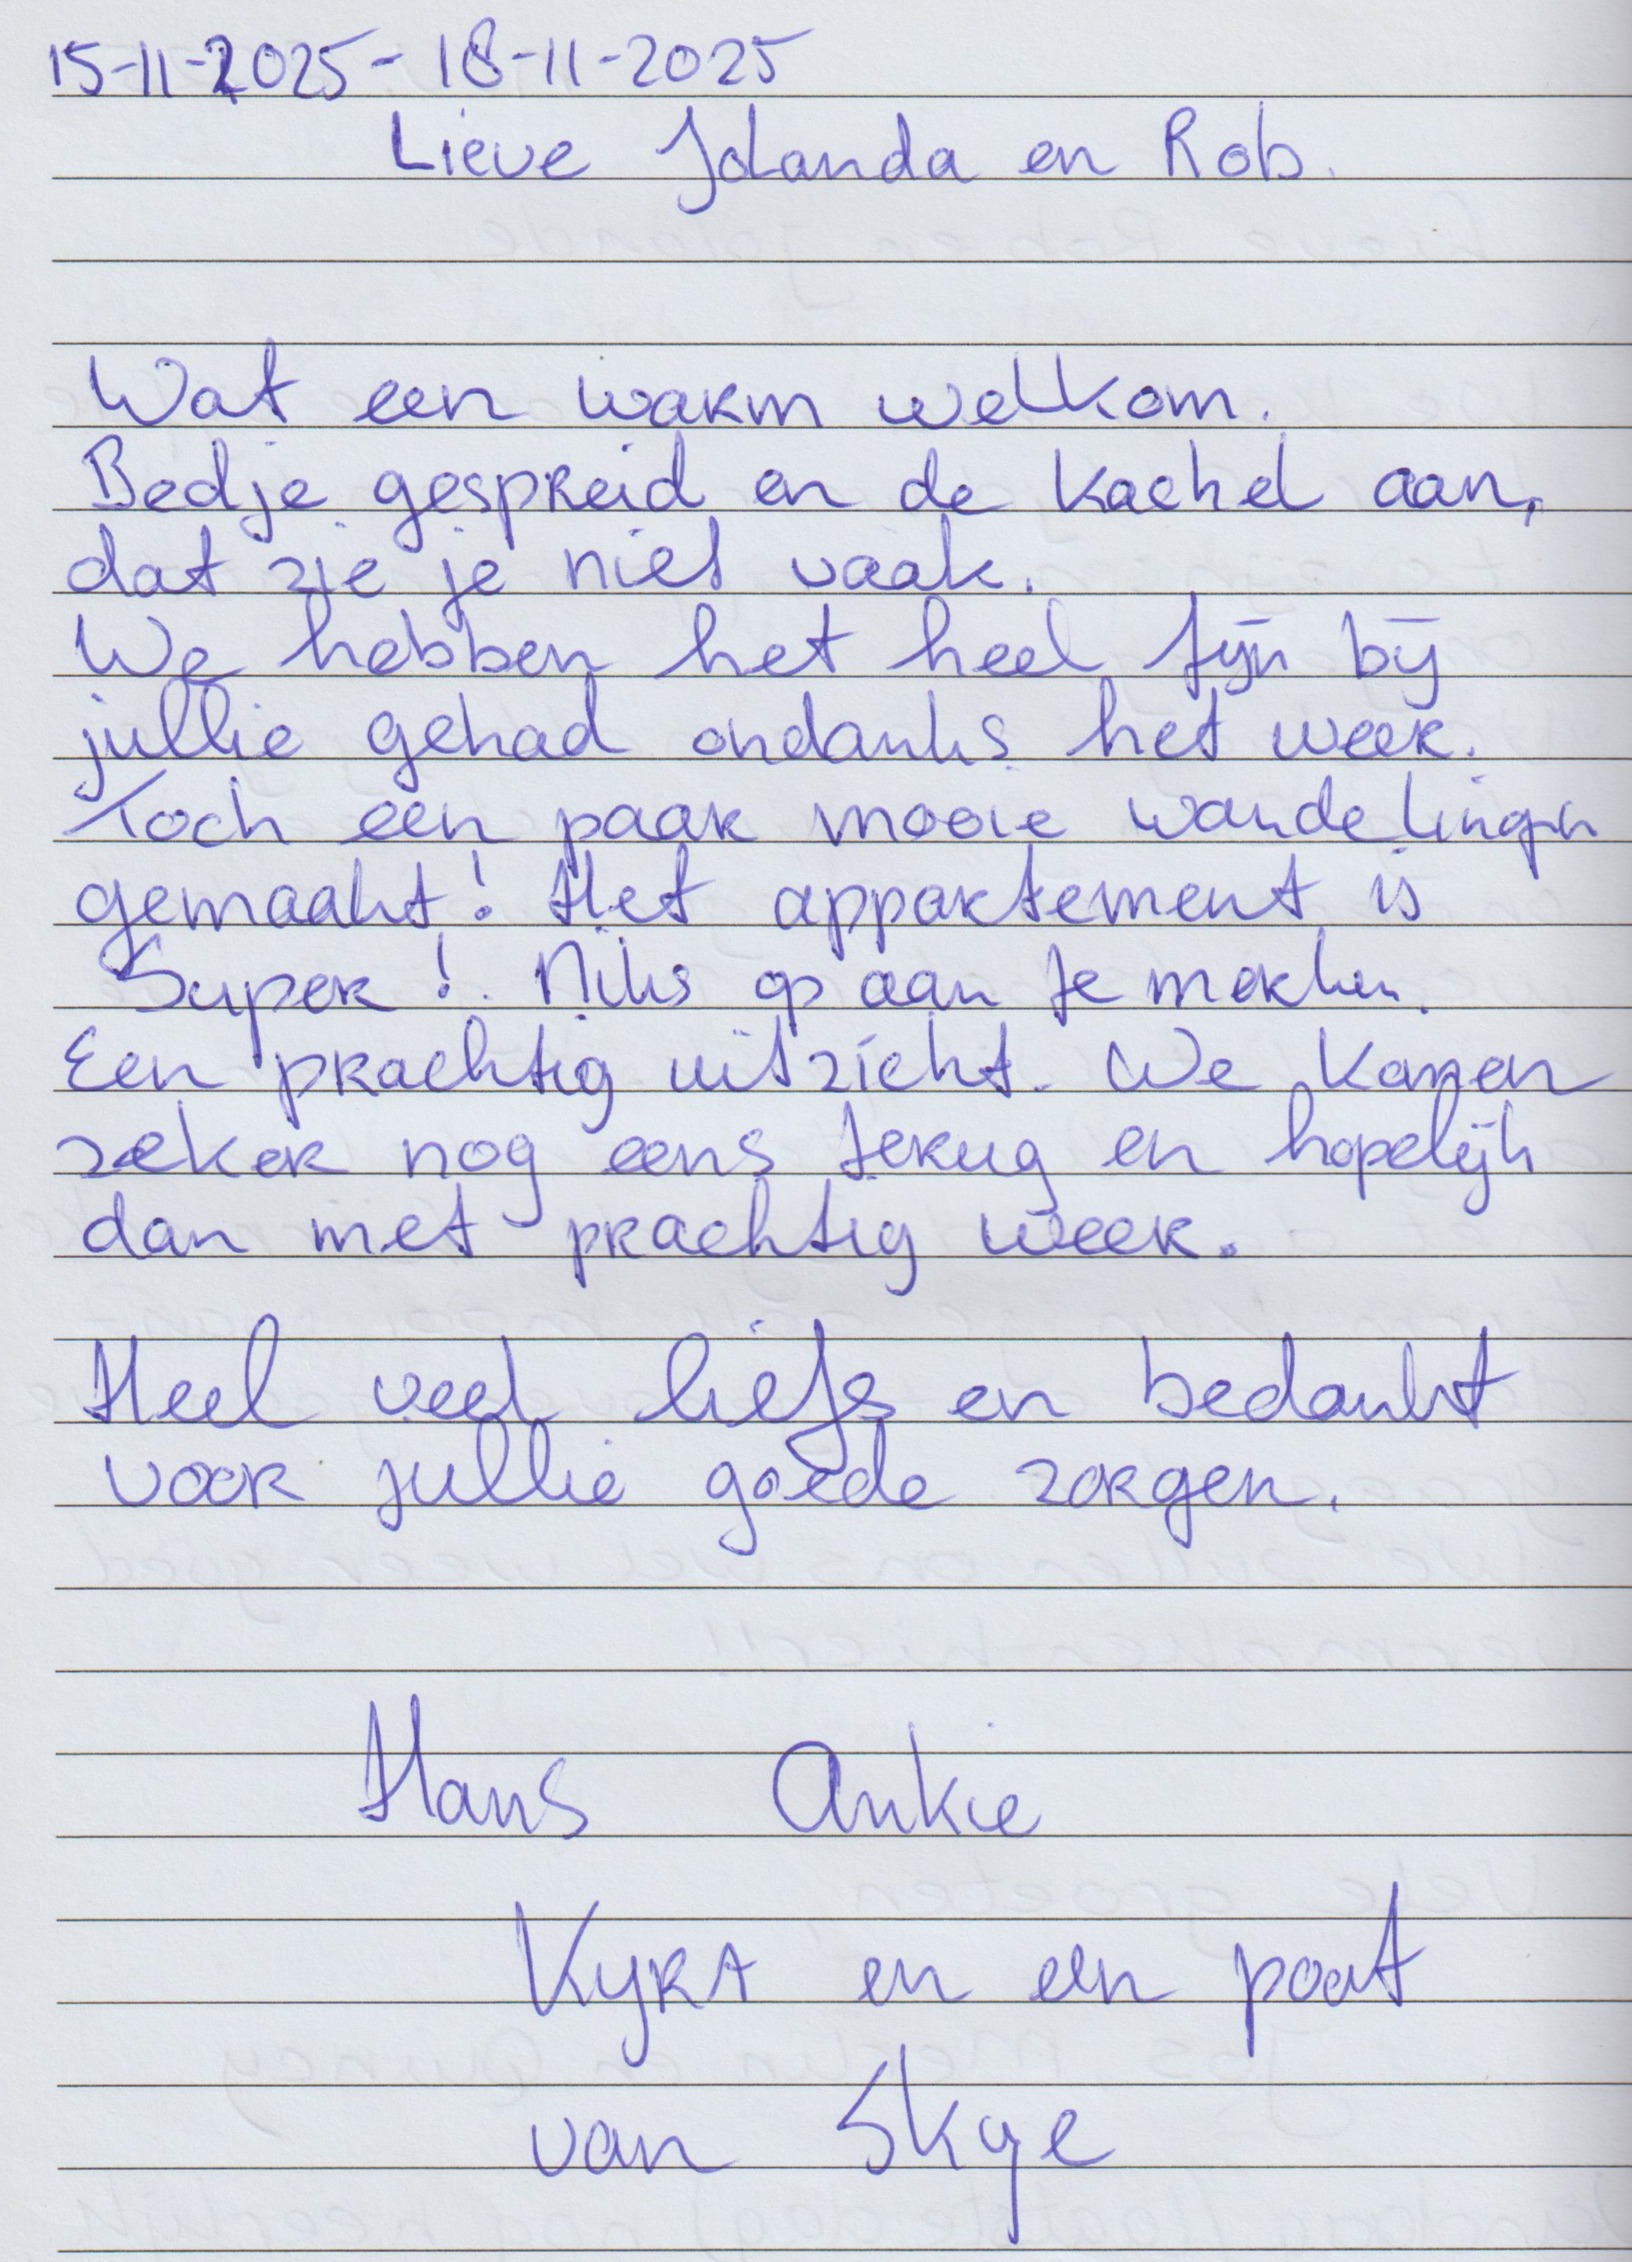 15-11-2025 - 18-11-2025
Lieve Jolanda en Rob.
Wat een warm welkom.
Bedje gespreid en de kachel aan,
dat zie je niet vaak.
We hebben het heel fijn bij
jullie gehad ondanks het weer.
Toch een paar mooie wandelingen
gemaakt! Het appartement is
Super! Niks op aan te merken.
Een prachtig uitzicht. We komen
zeker nog eens terug en hopelijk
dan met prachtig weer.
Heel veel liefs en bedankt
voor jullie goede zorgen.
Hans Ankie
Kyra en een poot
van Skye